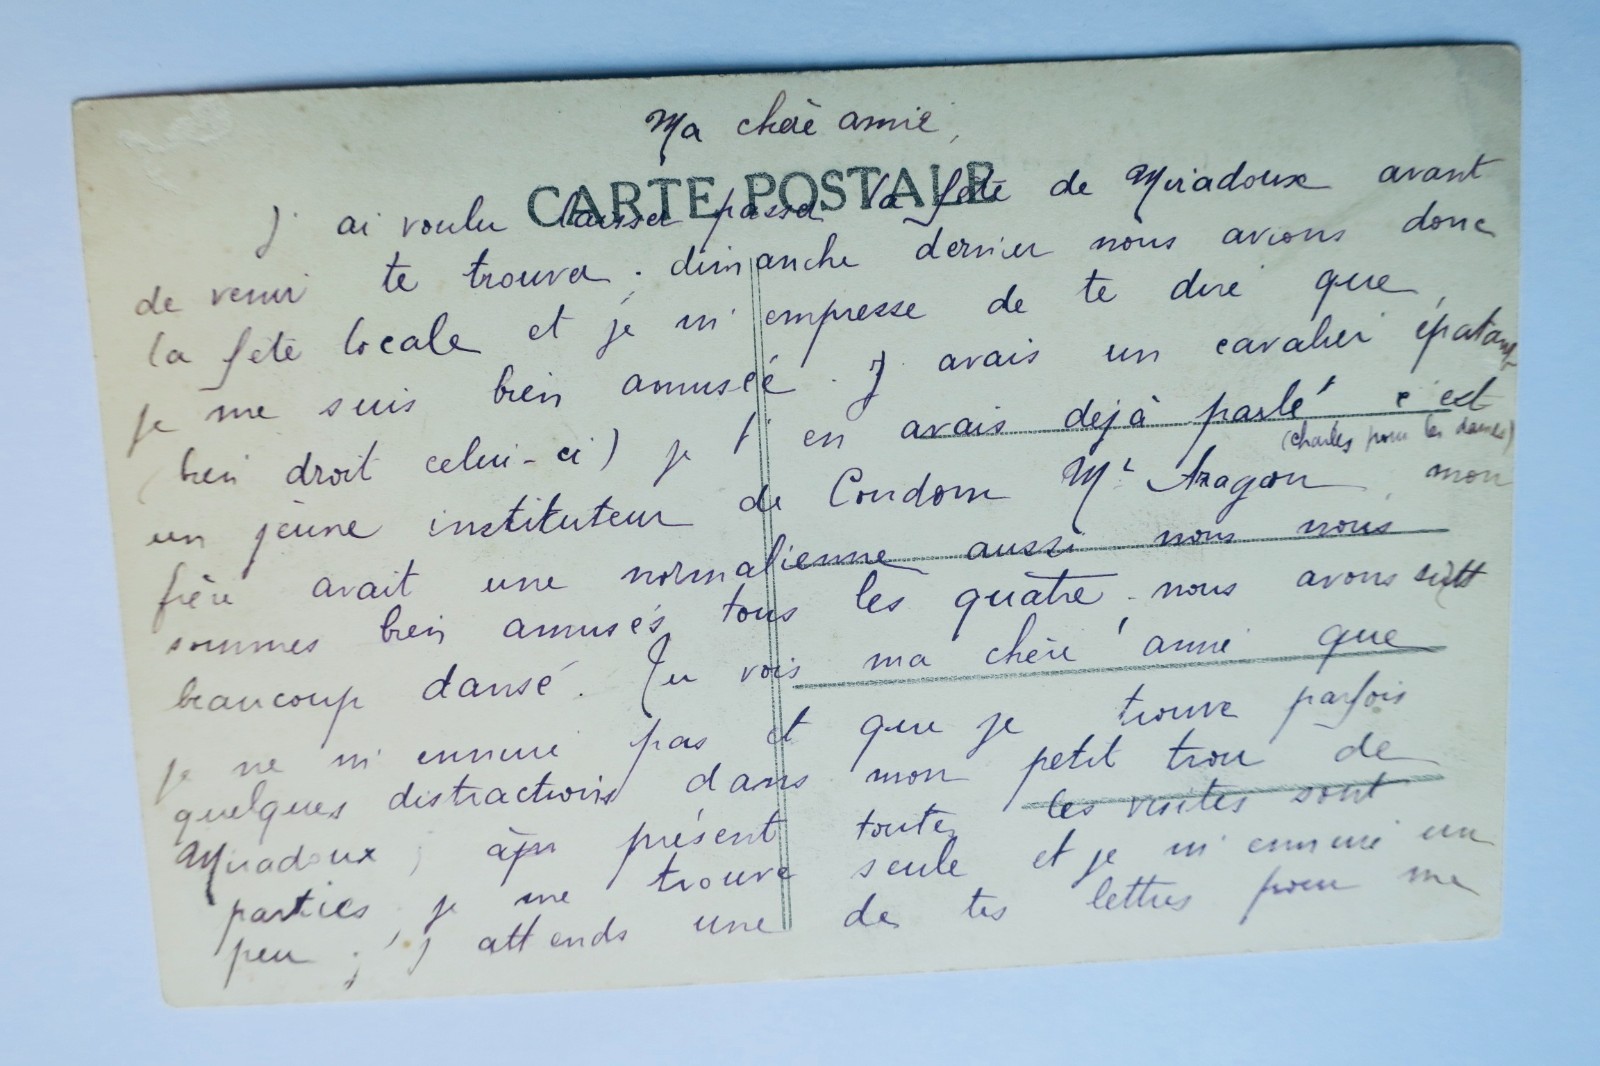 Ma chère amie,
CARTE POSTALE
J'ai voulu laisser passer la fête de Miradoux avant
de venir te trouver ; dimanche dernier nous avions donc
la fête locale et je m'empresse de te dire que
je me suis bien amusée. J'avais un cavalier épatant
(bien droit celui-ci) je t'en avais déjà parlé c'est
(Charles pour les dames)
un jeune instituteur de Condom Mr Aragon, mon
frère avait une normalienne aussi nous nous
sommes bien amusés tous les quatre. nous avons
beaucoup dansé. Tu vois ma chère amie que
je ne m'ennuie pas et que je trouve parfois
quelques distractions dans mon petit trou de
Miradoux ; à présent toutes les visites sont
parties, je me trouve seule et je m'ennuie un
peu ; j'attends une de tes lettres pour me